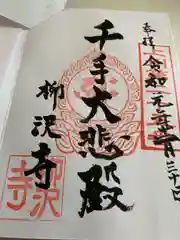 奉拝
令和元年
月二十日
千手大悲殿
柳沢寺
柳沢寺